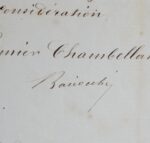 Considération
mier Chambellan
Baciocchi